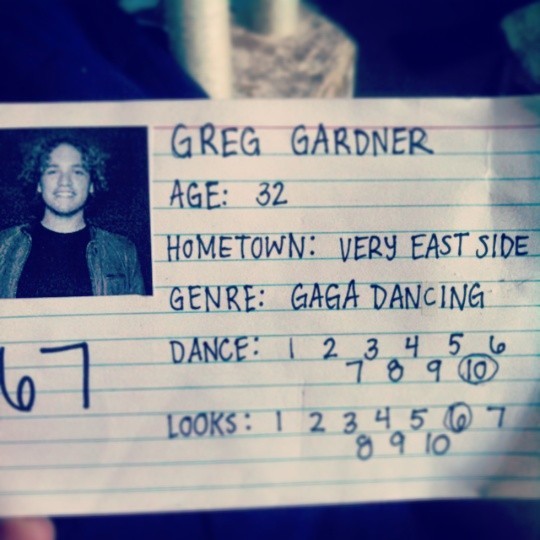 GREG GARDNER
AGE: 32
HOMETOWN: VERY EAST SIDE
GENRE: GAGA DANCING
67
DANCE: 1 2 3 4 5 6
7 8 9 10
LOOKS: 1 2 3 4 5 6 7
8 9 10